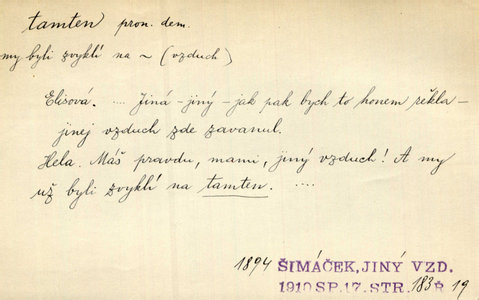 tamten pron. dem.
my byli zvyklí na ~ (vzduch)
Elisová. .... Jiná - jiný - jak pak bych to honem řekla -
jinej vzduch zde zavanul.
Hela. Máš pravdu, mami, jiný vzduch! A my
už byli zvyklí na tamten. ....
1894 ŠIMÁČEK, JINÝ VZD.
1910 SP. 17. STR. 183 19